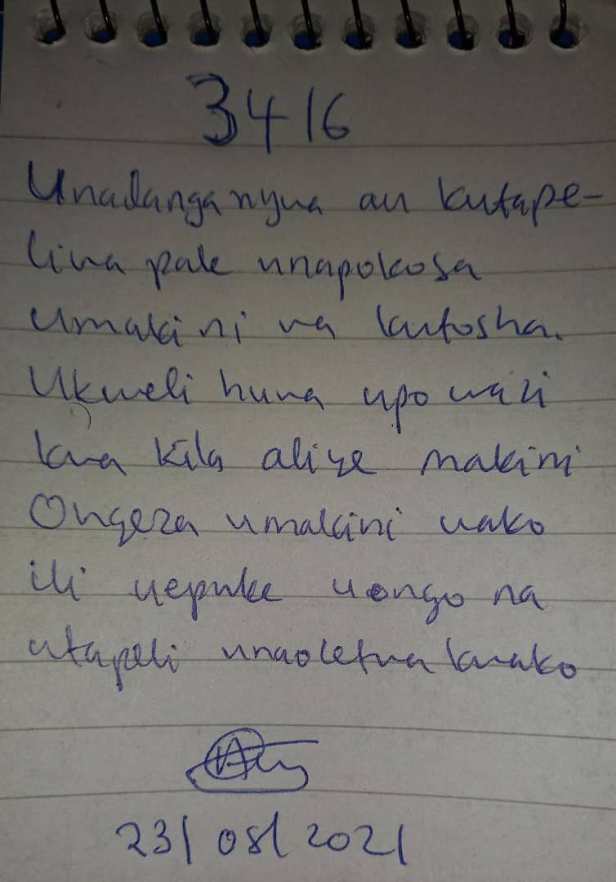 3416
Unadanganywa au kutape-
liwa pale unapokosa
Umakini wa kutosha.
Ukweli huwa upo wazi
kwa kila aliye makini
Ongeza umakini wako
ili uepuke uongo na
utapeli unaoletwa kwako
23/08/2021